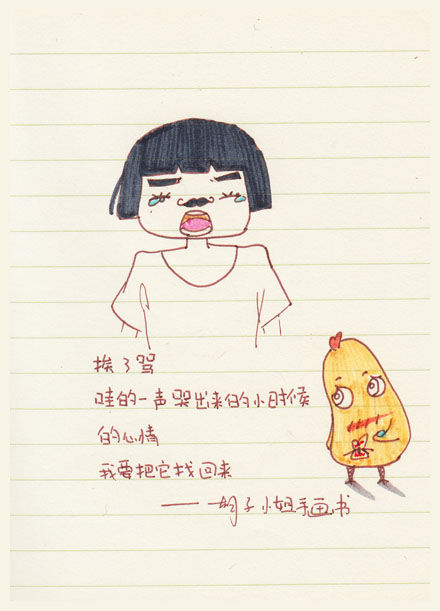 挨了骂
哇的一声哭出来的小时候
的心情
我要把它找回来
——胡子小姐手画书